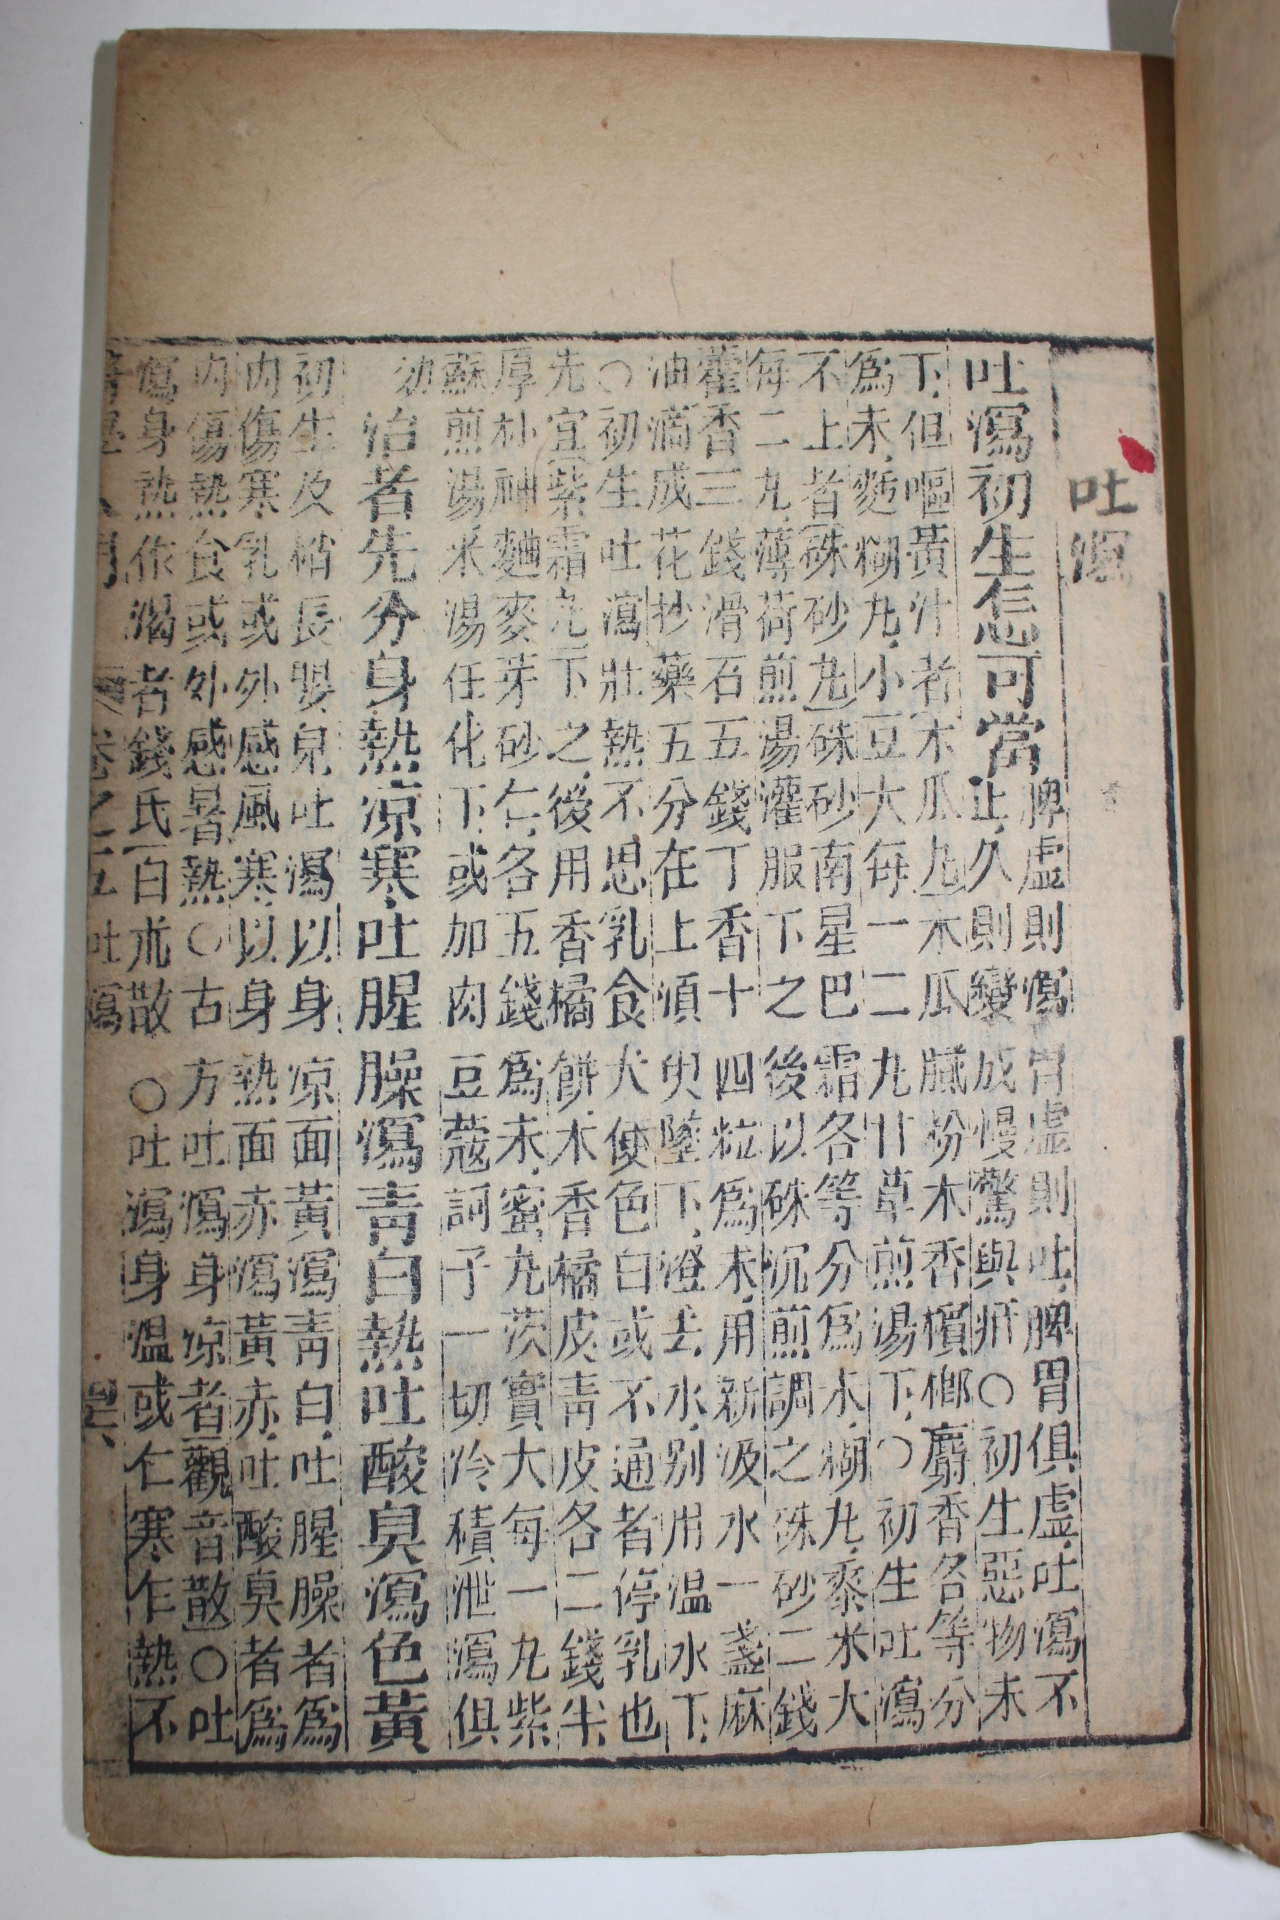 吐瀉
吐瀉初生怎可當
脾虛則瀉胃虛則吐脾胃俱虛吐瀉不
止久則變成慢驚與疳○初生惡物未
下但嘔黃汁者木瓜丸木瓜膩粉木香檳榔麝香各等分
爲末麪糊丸小豆大每一二丸甘草煎湯下○初生吐瀉
不上者硃砂丸硃砂南星巴霜各等分爲末糊丸黍米大
每二丸薄荷煎湯灌服下之後以硃沉煎調之硃砂二錢
藿香三錢滑石五錢丁香十四粒爲末用新汲水一盞麻
油滴成花抄藥五分在上須臾墜下澄去水別用温水下
○初生吐瀉壯熱不思乳食大便色白或不通者停乳也
先宜紫霜丸下之後用香橘餅木香橘皮青皮各二錢半
厚朴神麯麥芽砂仁各五錢爲末蜜丸茨實大每一丸紫
蘇煎湯米湯任化下或加肉豆蔻訶子一切冷積泄瀉俱
効
治者先分身熱凉寒吐腥臊瀉青白熱吐酸臭瀉色黃
初生及稍長嬰兒吐瀉以身凉面黃瀉青白吐腥臊者爲
内傷寒乳或外感風寒以身熱面赤瀉黃赤吐酸臭者爲
内傷熱食或外感暑熱○古方吐瀉身凉者觀音散○吐
瀉身熱作渴者錢氏白朮散○吐瀉身温或乍寒乍熱不
卷之五 吐瀉